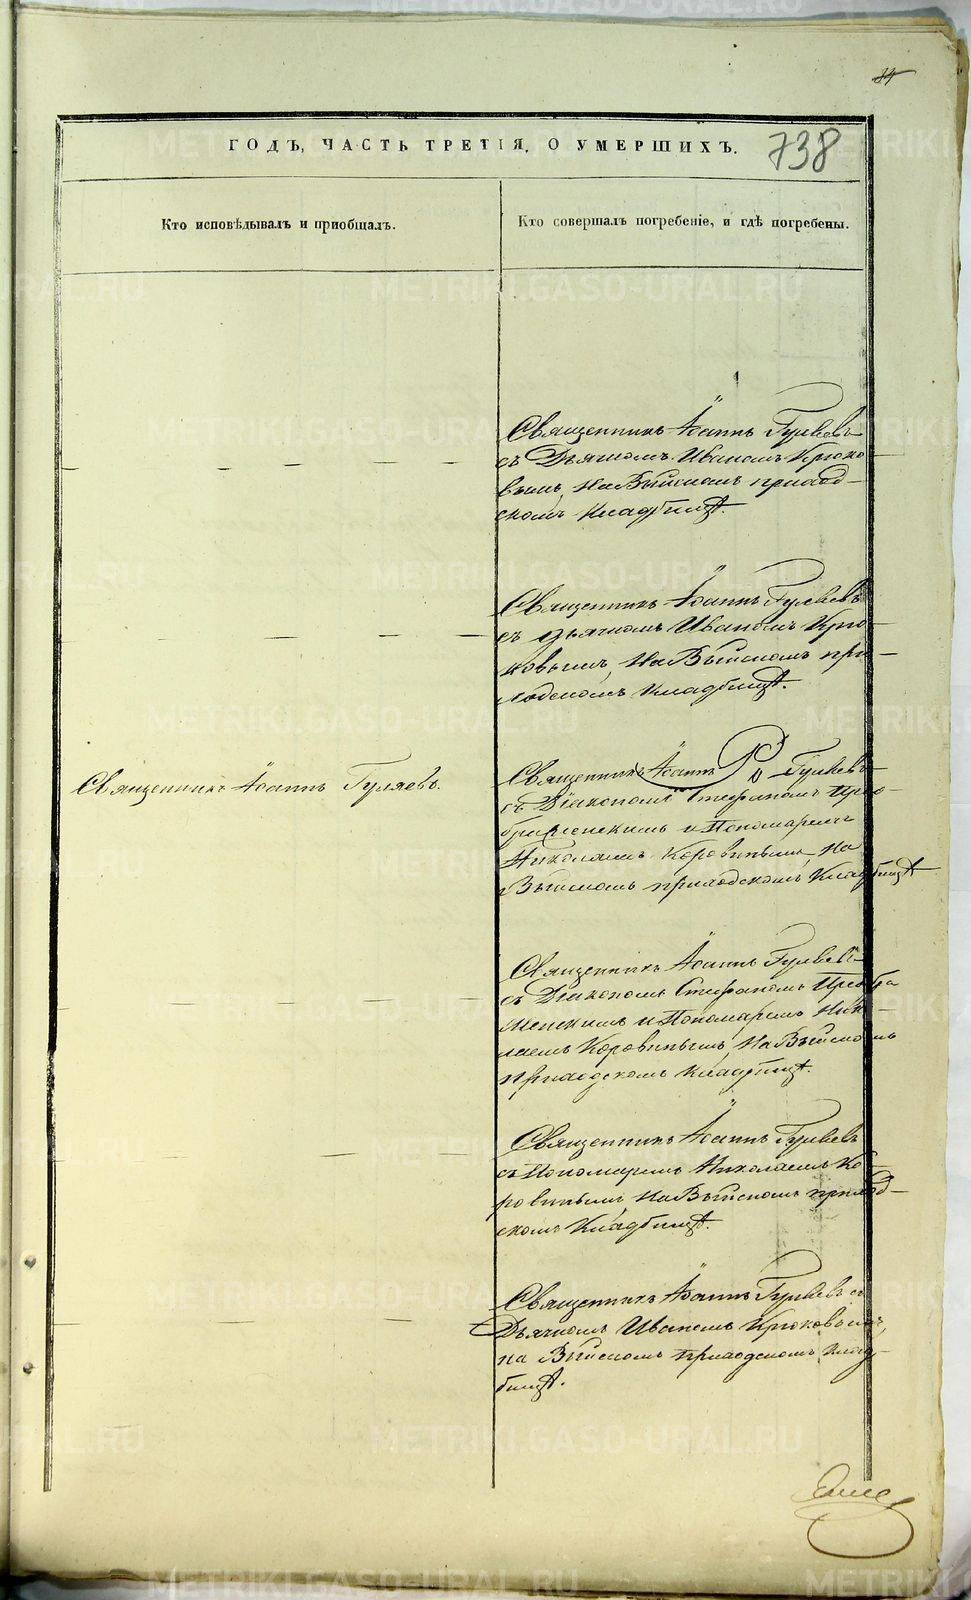 34
ГОДЪ, ЧАСТЬ ТРЕТІЯ, О УМЕРШИХЪ.
738
Кто исповѣдывалъ и пріобщалъ.
Кто совершалъ погребеніе, и гдѣ погребены.
Священникъ Іоаннъ Гуляевъ
съ Дьячкомъ Иваномъ Крюко
вымъ, на Выйскомъ приход-
скомъ кладбищѣ.
Священникъ Іоаннъ Гуляевъ
съ дьячкомъ Иваномъ Крю-
ковымъ, на Выйскомъ при-
ходскомъ кладбищѣ.
Священникъ Іоаннъ Гуляевъ.
Священникъ Іоаннъ Гуляевъ
съ Діакономъ Стефаномъ Прео-
браженскимъ и Пономаремъ
Николаемъ Коровинымъ, на
Выйскомъ приходскомъ кладбищѣ
Священникъ Іоаннъ Гуляевъ
съ Діакономъ Стефаномъ Преобра
женскимъ и Пономаремъ Нико-
лаемъ Коровинымъ, на Выйскомъ
приходскомъ кладбищѣ.
Священникъ Іоаннъ Гуляевъ
съ Пономаремъ Николаемъ Ко-
ровинымъ, на Выйскомъ приход-
скомъ кладбищѣ.
Священникъ Іоаннъ Гуляевъ съ
Дьячкомъ Иваномъ Крюковымъ,
на Выйскомъ приходскомъ клад-
бищѣ.
METRIKI.GASO-URAL.RU